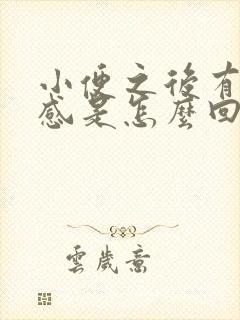 小便之後有
感是怎麼回
雲歲意